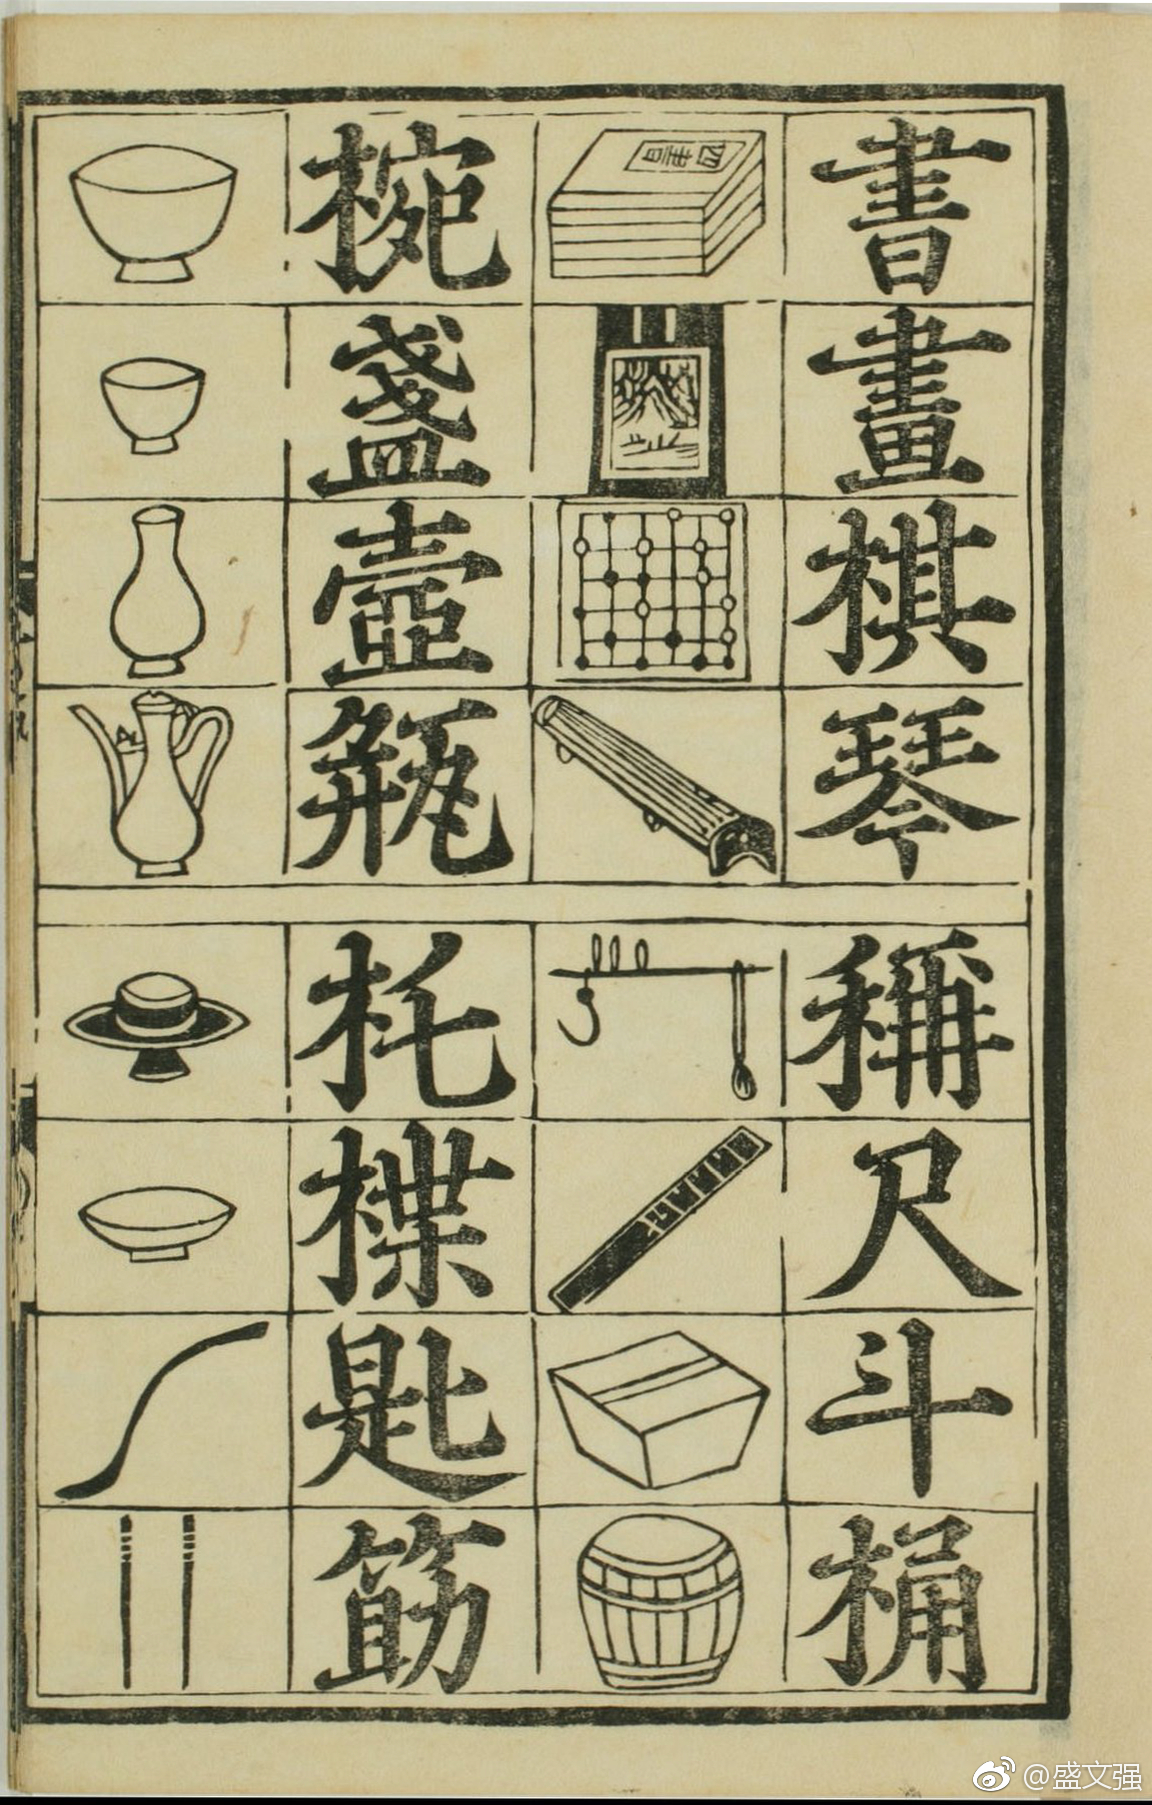 書畫棋琴
稱尺斗桶
椀盞壺瓶
杔楪匙筯
四書
@盛文强